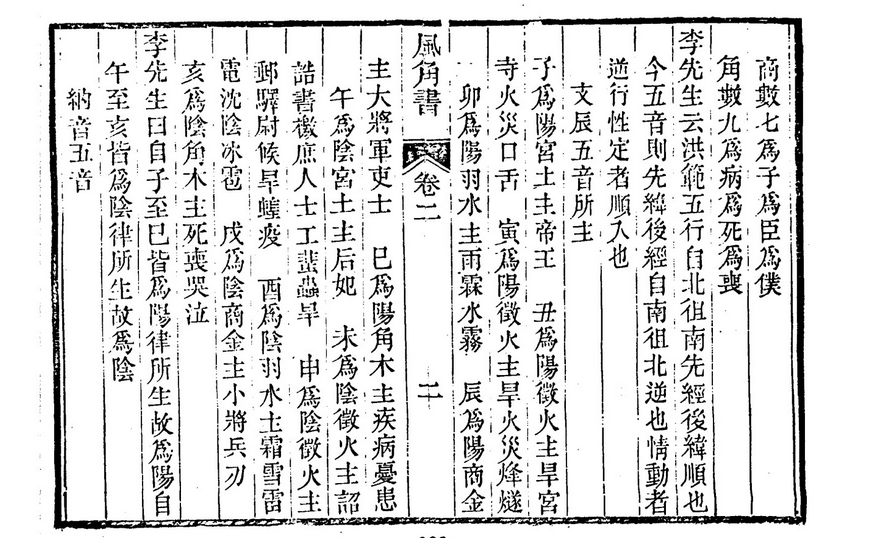 商數七爲子爲臣爲僕
角數九爲病爲死爲喪
李先生云洪範五行自北徂南先經後緯順也
今五音則先緯後經自南徂北逆也情動者
逆行性定者順入也
支辰五音所主
子爲陽宮土主帝王　丑爲陽徵火主旱宮
寺火災口舌　寅爲陽徵火主旱火災烽燧
卯爲陽羽水主雨霖水霧　辰爲陽商金
風角書　卷二　二
主大將軍吏士　巳爲陽角木主疾病憂患
午爲陰宮土主后妃　未爲陰徵火主詔
誥書檄庶人士工蜚蟲旱　申爲陰徵火主
郵驛尉候旱蝗疫　酉爲陰羽水主霜雪雷
電沈陰冰雹　戌爲陰商金主小將兵刃
亥爲陰角木主死喪哭泣
李先生曰自子至巳皆爲陽律所生故爲陽自
午至亥皆爲陰律所生故爲陰
納音五音